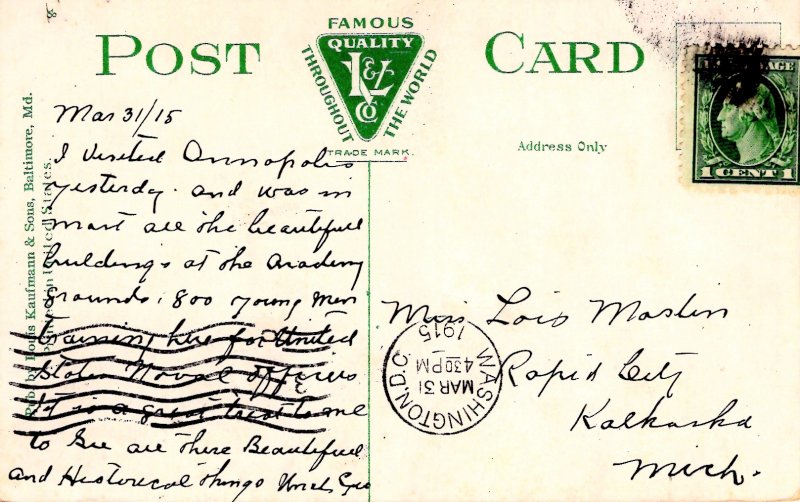 POST CARD
FAMOUS
QUALITY
THROUGHOUT THE WORLD
L K & Co
TRADE MARK.
Address Only
1 CENT 1
Pub. by Louis Kaufmann & Sons, Baltimore, Md.
Printed in United States.
Mar 31/15
I visited Annapolis
yesterday. and was in
most all the beautifull
buildings at the Academy
Grounds, 800 young men
training here for United
States Naval officers
It is a great treat to me
to See all these Beautifull
and Historical things Uncle
WASHINGTON, D.C.
MAR 31
4 30 PM
1915
Miss Lois Maslin
Rapid City
Kalkaska
Mich.